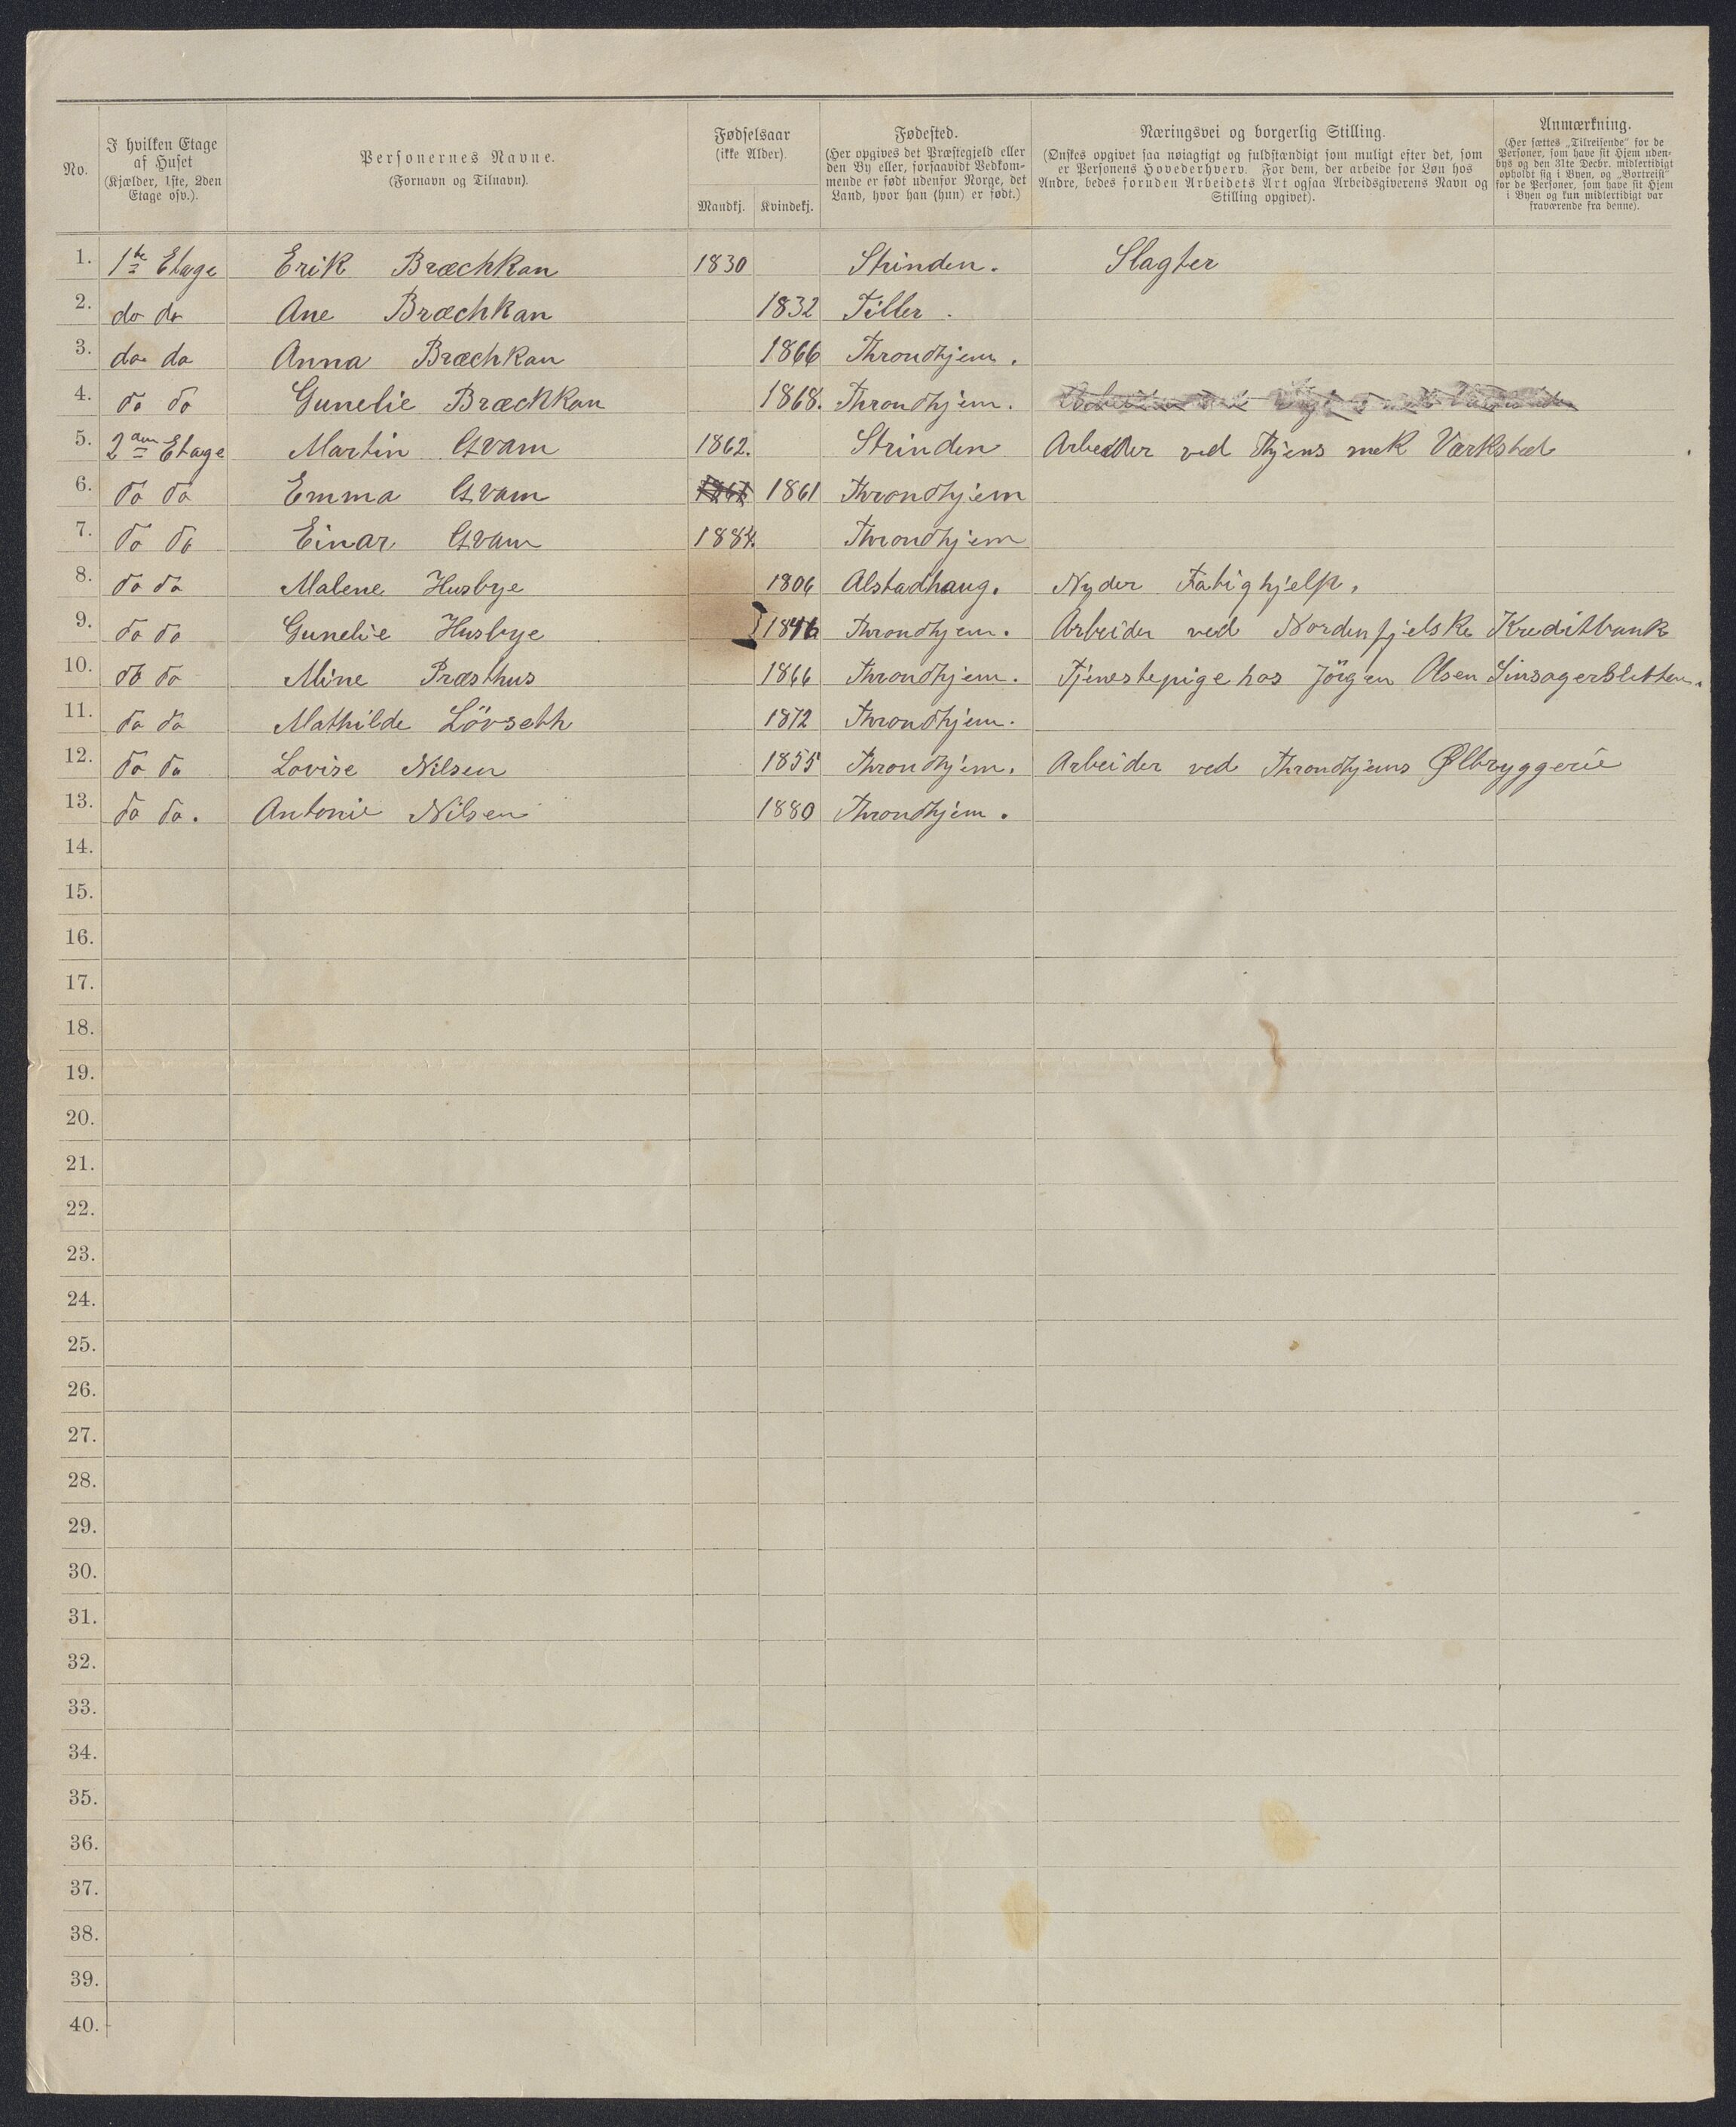 No.
I hvilken Etage
af Huset
(Kjælder, 1ste, 2den
Etage osv.).
Personernes Navne.
(Fornavn og Tilnavn).
Fødselsaar
(ikke Alder).
Mandkj. Kvindekj.
Fødested.
(Her opgives det Præstegjeld eller
den By eller, forsaavidt Vedkom-
mende er født udenfor Norge, det
Land, hvor han (hun) er født.)
Næringsvei og borgerlig Stilling.
(Ønskes opgivet saa nøiagtigt og fuldstændigt som muligt efter det, som
er Personens Hovederhverv. For dem, der arbeide for Løn hos
Andre, bedes foruden Arbeidets Art ogsaa Arbeidsgiverens Navn og
Stilling opgivet).
Anmærkning.
(Her sættes „Tilreisende“ for de
Personer, som have sit Hjem uden-
bys og den 31te Decbr. midlertidigt
opholdt sig i Byen, og „Bortreist“
for de Personer, som have sit Hjem
i Byen og kun midlertidigt var
fraværende fra denne).
1. 1te Etage Erik Bræchkan 1830 Strinden. Slagter
2. do do Ane Bræchkan 1832 Tiller.
3. do do Anna Bræchkan 1866 Throndhjem.
4. do do Gunelie Bræchkan 1868. Throndhjem.
5. 2den Etage Martin Qvam 1862. Strinden Arbeider ved Thjens mek Værksted
6. do do Emma Qvam 1861 1861 Throndhjem
7. do do Einar Qvam 1884. Throndhjem
8. do do Malene Husbye 1806 Alstadhaug. Nyder Fatighjelp.
9. do do Gunelie Husbye 1846 Throndhjem. Arbeider ved Nordenfjelske Kreditbank
10. do do Mine Præsthus 1866 Throndhjem. Tjenestepige hos Jörgen Olsen Sinsagersletten.
11. do do Mathilde Lövseth 1872 Throndhjem.
12. do do Lovise Nilsen 1855 Throndhjem. Arbeider ved Throndhjems Ølbryggerie
13. do do. Antonie Nilsen 1880 Throndhjem.
14.
15.
16.
17.
18.
19.
20.
21.
22.
23.
24.
25.
26.
27.
28.
29.
30.
31.
32.
33.
34.
35.
36.
37.
38.
39.
40.